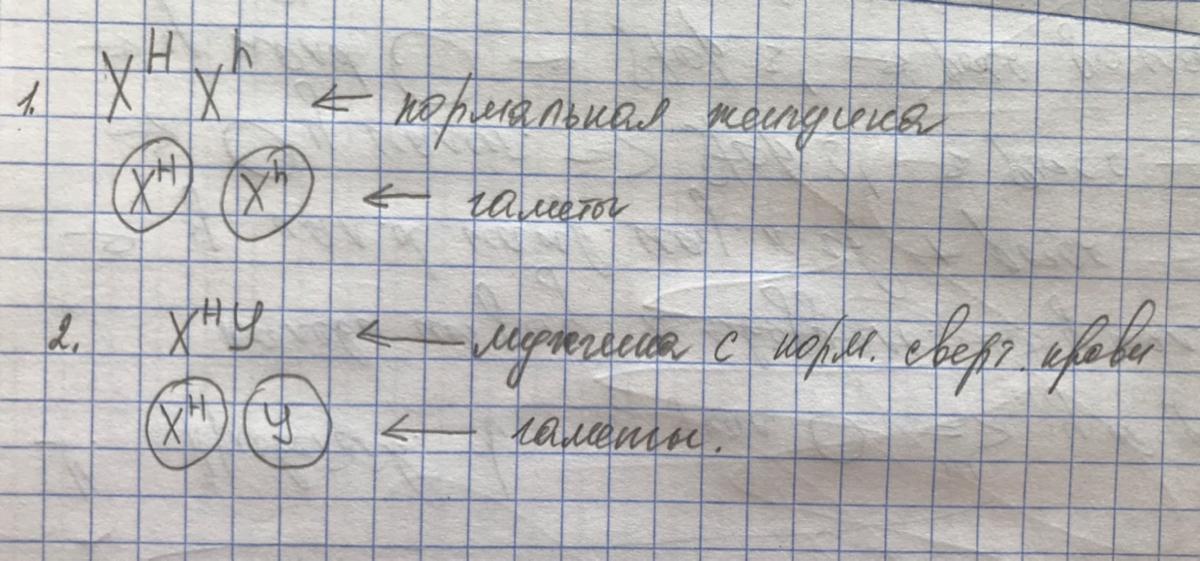 1. X^H X^h ← нормальная женщина
X^H X^h ← гаметы
2. X^H У ← мужчина с норм. сверт. крови
X^H У ← гаметы.